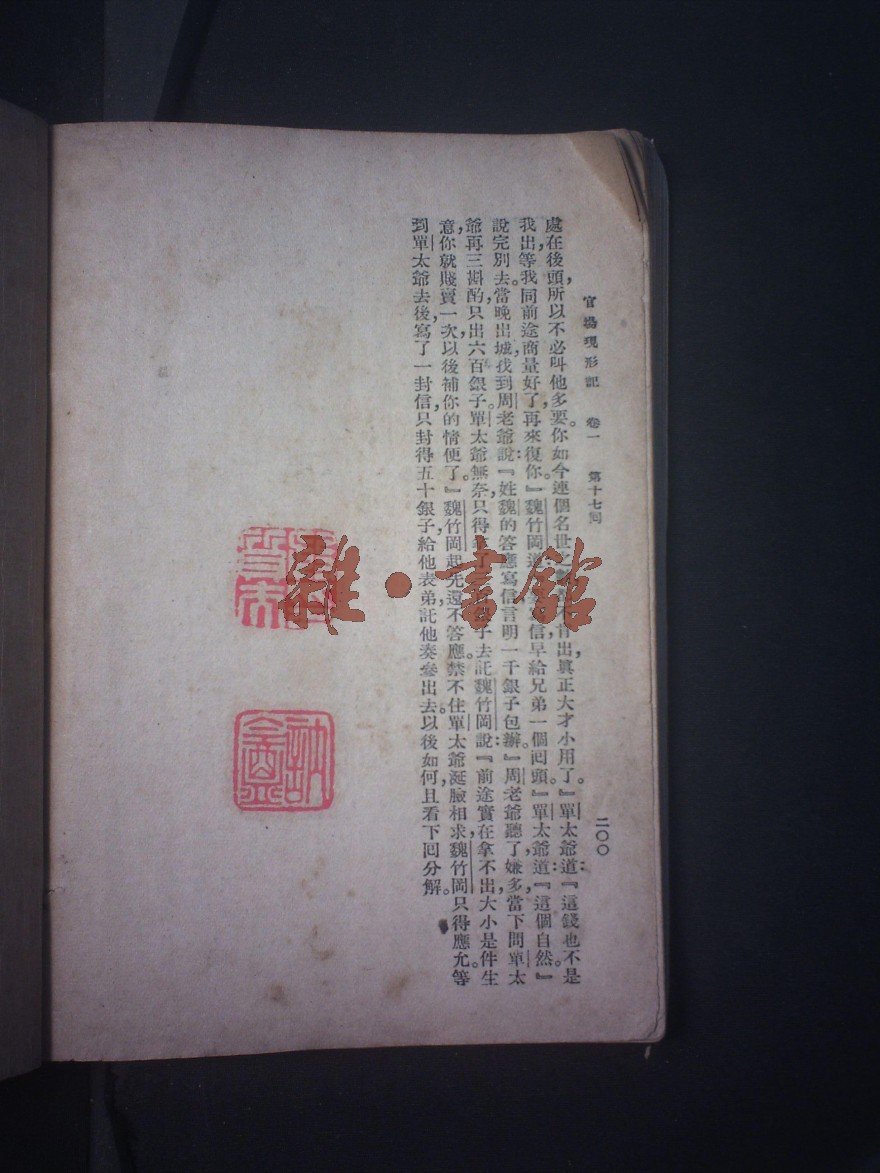 官場現形記 卷一 第十七回 二〇〇
處在後頭，所以不必叫他多要。你如今連個名世之肯出，眞正大才小用了。』單太爺道：『這錢也不是
我出，等我同前途商量好了，再來復你。』魏竹岡道：信，早給兄弟一個回頭。』單太爺道：『這個自然。』
說完別去。當晚出城，找到周老爺，說：『姓魏的答應寫信，言明一千銀子包辦。』周老爺聽了嫌多，當下問單太
爺再三斟酌，只出六百銀子。單太爺無奈，只得拿了銀子去託魏竹岡，說：『前途實在拿不出，大小是件生
意，你就賤賣一次，以後補你的情便了。』魏竹岡起先還不答應，禁不住單太爺涎臉相求，魏竹岡只得應允。等
到單太爺去後，寫了一封信，只封得五十銀子給他表弟，託他奏參出去。以後如何，且看下回分解。
雜·書館